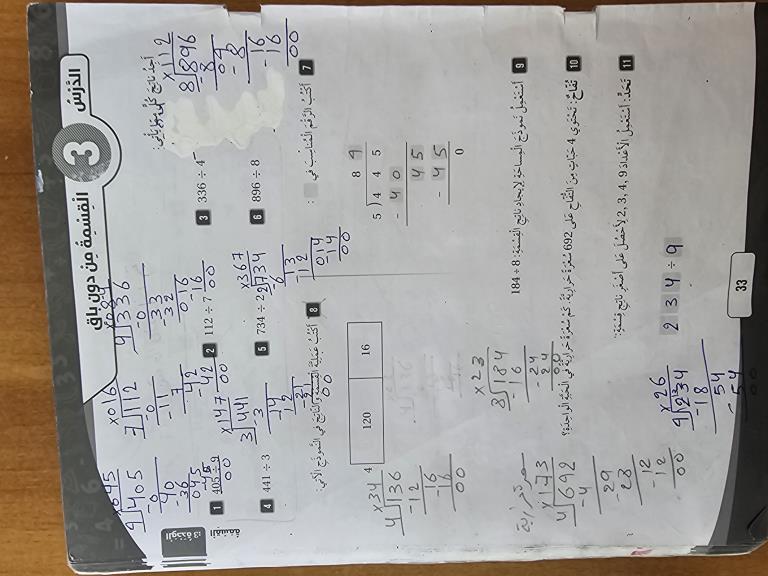 الوحدة 3: القسمة
الدرس 3 القسمة من دون باق
أجد ناتج كل مما يأتي:
1 405 ÷ 9
2 112 ÷ 7
3 336 ÷ 4
4 441 ÷ 3
5 734 ÷ 2
6 896 ÷ 8
045
9 405
- 0
40
- 36
045
- 45
00
×016
7 112
- 0
11
- 7
42
- 42
00
084
4 336
- 0
33
- 32
016
- 16
00
×147
3 441
- 3
14
- 12
21
- 21
00
×367
2 734
- 6
13
- 12
014
- 14
00
×112
8 896
- 8
09
- 8
16
- 16
00
7 أكتب الرقم المناسب في :
8 9
5 ) 4 4 5
- 4 0
4 5
- 4 5
0
8 أكتب عملية القسمة والناتج في النموذج الآتي:
4 120 16
×34
4 136
- 12
16
- 16
00
9 أستعمل نموذج المساحة لإيجاد ناتج القسمة: 184 ÷ 8
×23
8 184
- 16
24
- 24
00
10 تفاح: تحتوي 4 حبات من التفاح على 692 سعرة حرارية. كم سعرة حرارية في الحبة الواحدة؟
×173
4 692
- 4
29
- 28
12
- 12
00
11 تحد: أستعمل الأعداد 2, 3, 4, 9 لأحصل على أصغر ناتج قسمة:
2 3 4 ÷ 9
×26
9 234
- 18
54
- 54
00
33